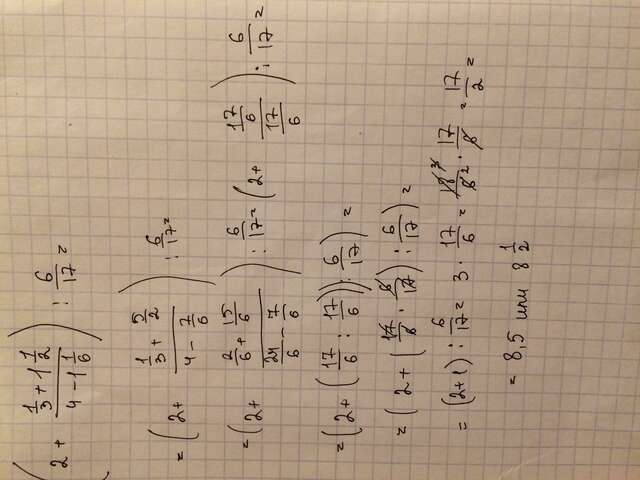 (2 + (1/3 + 1 1/2)/(4 - 1 1/6)) : 6/17 =
= (2 + (1/3 + 5/2)/(4 - 7/6)) : 6/17 =
= (2 + (2/6 + 15/6)/(24/6 - 7/6)) : 6/17 = (2 + (17/6)/(17/6)) : 6/17 =
= (2 + (17/6 : 17/6)) : 6/17) =
= (2 + (17/6 · 6/17) : 6/17) =
= (2+1) : 6/17 = 3 · 17/6 = · 17/6 = 17/2 =
= 8,5 или 8 1/2